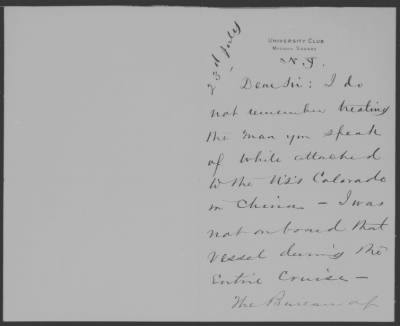 UNIVERSITY CLUB
MADISON SQUARE
N.Y.
23d July
Dear Sir: I do
not remember treating
the man you speak
of while attached
to the U.S.S Colorado
in China - I was
not on board that
vessel during the
Entire Cruise -
The Bureau of